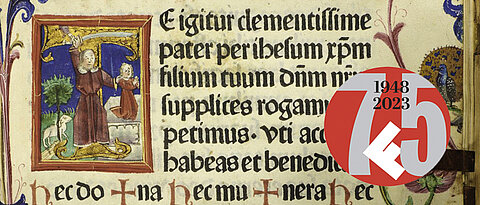 E igitur clementissime
pater per ihesum xp̄m
filium tuum dn̄m nr̄
supplices rogamu
petimus· vti acc
habeas et benedic
hec do + na hec mu + nera hec
1948
2023
75